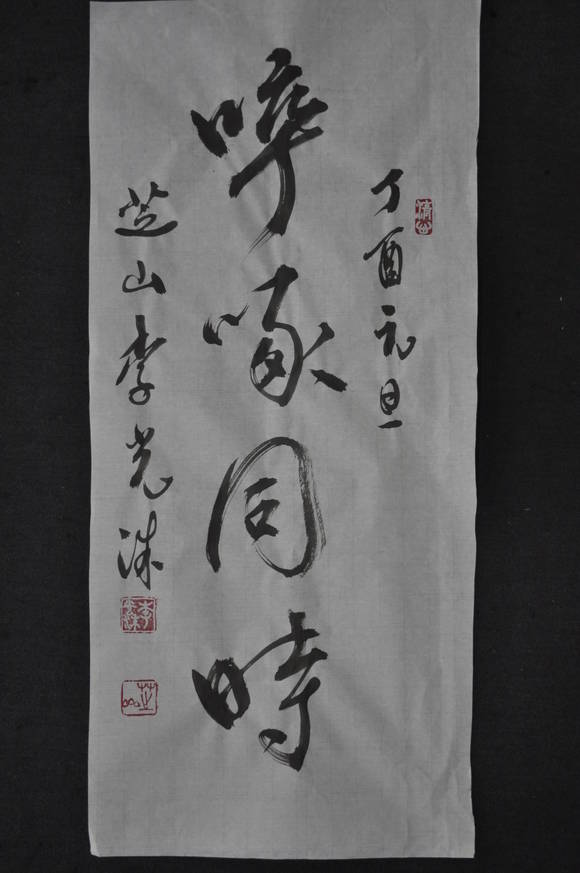 丁酉元旦
啐啄同時
芝山李光洙